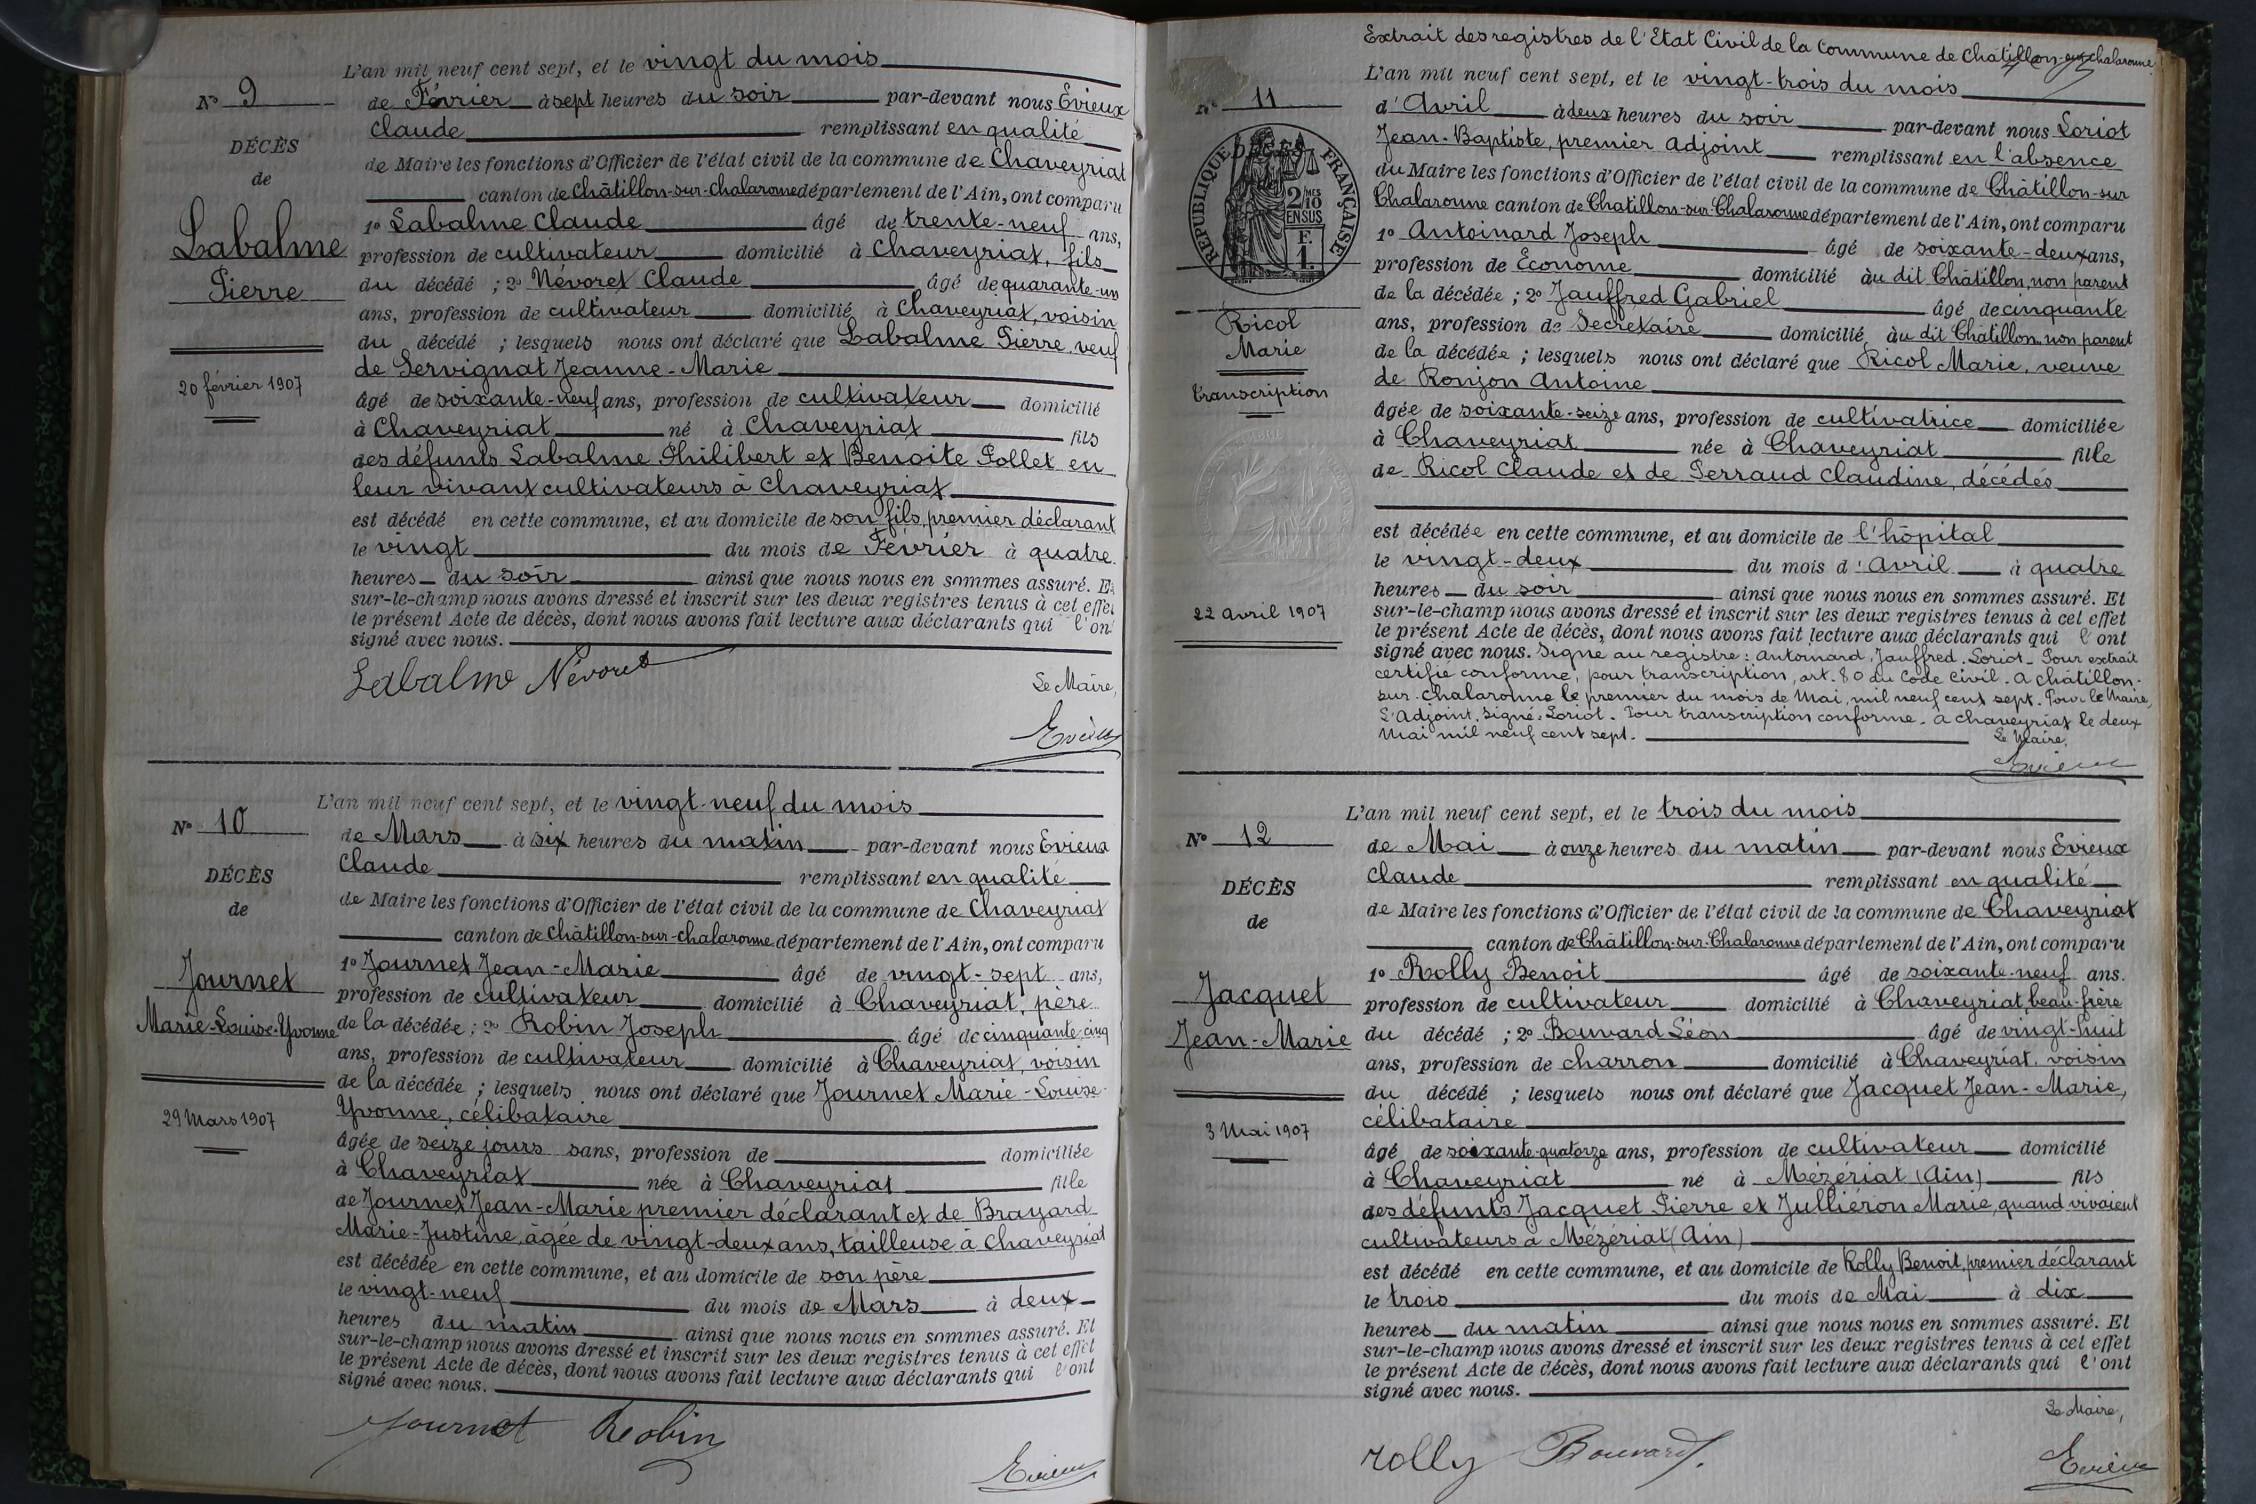 L'an mil neuf cent sept, et le vingt du mois
N° 9
de Février à sept heures du soir par-devant nous Evieux
Claude remplissant en qualité
DÉCÈS
de Maire les fonctions d'Officier de l'état civil de la commune de Chaveyriat
de
canton de Châtillon-sur-Chalaronne département de l'Ain, ont comparu
Labalme
Pierre
1° Labalme Claude âgé de trente-neuf ans,
profession de cultivateur domicilié à Chaveyriat, fils
du décédé ; 2° Névoret Claude âgé de quarante-un
ans, profession de cultivateur domicilié à Chaveyriat, voisin
du décédé ; lesquels nous ont déclaré que Labalme Pierre, veuf
de Servignat Jeanne-Marie
20 février 1907
âgé de soixante-neuf ans, profession de cultivateur domicilié
à Chaveyriat né à Chaveyriat fils
des défunts Labalme Philibert et Benoite Pollet en
leur vivant cultivateurs à Chaveyriat
est décédé en cette commune, et au domicile de son fils, premier déclarant
le vingt du mois de Février à quatre
heures du soir ainsi que nous nous en sommes assuré. Et
sur-le-champ nous avons dressé et inscrit sur les deux registres tenus à cet effet
le présent Acte de décès, dont nous avons fait lecture aux déclarants qui l'ont
signé avec nous.
Labalme Névoret
Le Maire,
Evieux
L'an mil neuf cent sept, et le vingt-neuf du mois
N° 10
de Mars à six heures du matin par-devant nous Evieux
Claude remplissant en qualité
DÉCÈS
de Maire les fonctions d'Officier de l'état civil de la commune de Chaveyriat
de
canton de Châtillon-sur-Chalaronne département de l'Ain, ont comparu
Journet
Marie-Louise-Yvonne
1° Journet Jean-Marie âgé de vingt-sept ans,
profession de cultivateur domicilié à Chaveyriat, père
de la décédée ; 2° Robin Joseph âgé de cinquante-cinq
ans, profession de cultivateur domicilié à Chaveyriat, voisin
de la décédée ; lesquels nous ont déclaré que Journet Marie-Louise-
Yvonne, célibataire
29 Mars 1907
âgée de seize jours sans, profession de domiciliée
à Chaveyriat née à Chaveyriat fille
de Journet Jean-Marie premier déclarant et de Brayard
Marie-Justine, âgée de vingt-deux ans, tailleuse à Chaveyriat
est décédée en cette commune, et au domicile de son père
le vingt-neuf du mois de Mars à deux
heures du matin ainsi que nous nous en sommes assuré. Et
sur-le-champ nous avons dressé et inscrit sur les deux registres tenus à cet effet
le présent Acte de décès, dont nous avons fait lecture aux déclarants qui l'ont
signé avec nous.
Journet Robin
Evieux
Extrait des registres de l'Etat Civil de la Commune de Châtillon-sur-Chalaronne.
L'an mil neuf cent sept, et le vingt-trois du mois
N° 11
d'Avril à deux heures du soir par-devant nous Loriot
Jean-Baptiste, premier adjoint remplissant en l'absence
DÉCÈS
RÉPUBLIQUE FRANÇAISE
2/10 MES
EN SUS
F.
1.
du Maire les fonctions d'Officier de l'état civil de la commune de Châtillon-sur
Chalaronne canton de Châtillon-sur-Chalaronne département de l'Ain, ont comparu
1° Antoinard Joseph âgé de soixante-deux ans,
profession de Econome domicilié au dit Châtillon, non parent
de la décédée ; 2° Jauffred Gabriel âgé de cinquante
Ricol
Marie
transcription
ans, profession de Secrétaire domicilié au dit Châtillon, non parent
de la décédée ; lesquels nous ont déclaré que Ricol Marie, veuve
de Ronjon Antoine
âgée de soixante-seize ans, profession de cultivatrice domiciliée
à Chaveyriat née à Chaveyriat fille
de Ricol Claude et de Perraud Claudine, décédés
est décédée en cette commune, et au domicile de l'hôpital
le vingt-deux du mois d'Avril à quatre
heures du soir ainsi que nous nous en sommes assuré. Et
22 avril 1907
sur-le-champ nous avons dressé et inscrit sur les deux registres tenus à cet effet
le présent Acte de décès, dont nous avons fait lecture aux déclarants qui l'ont
signé avec nous. Signé au registre : Antoinard, Jauffred, Loriot_ Pour extrait
certifié conforme, pour transcription, art. 80 du Code Civil. A Châtillon-
sur-Chalaronne le premier du mois de Mai, mil neuf cent sept. Pour le Maire,
L'Adjoint, Signé : Loriot. Pour transcription conforme. A Chaveyriat le deux
Mai mil neuf cent sept.
Le Maire,
Evieux
L'an mil neuf cent sept, et le trois du mois
N° 12
de Mai à onze heures du matin par-devant nous Evieux
Claude remplissant en qualité
DÉCÈS
de Maire les fonctions d'Officier de l'état civil de la commune de Chaveyriat
de
canton de Châtillon-sur-Chalaronne département de l'Ain, ont comparu
1° Rolly Benoit âgé de soixante-neuf ans.
Jacquet
Jean-Marie
profession de cultivateur domicilié à Chaveyriat, beau-frère
du décédé ; 2° Bouvard Léon âgé de vingt-huit
ans, profession de charron domicilié à Chaveyriat, voisin
du décédé ; lesquels nous ont déclaré que Jacquet Jean-Marie,
célibataire
3 Mai 1907
âgé de soixante-quatorze ans, profession de cultivateur domicilié
à Chaveyriat né à Mézériat (Ain) fils
des défunts Jacquet Pierre et Julliéron Marie, quand vivaient
cultivateurs à Mézériat (Ain)
est décédé en cette commune, et au domicile de Rolly Benoit, premier déclarant
le trois du mois de Mai à dix
heures du matin ainsi que nous nous en sommes assuré. Et
sur-le-champ nous avons dressé et inscrit sur les deux registres tenus à cet effet
le présent Acte de décès, dont nous avons fait lecture aux déclarants qui l'ont
signé avec nous.
Le Maire,
Rolly Bouvard
Evieux